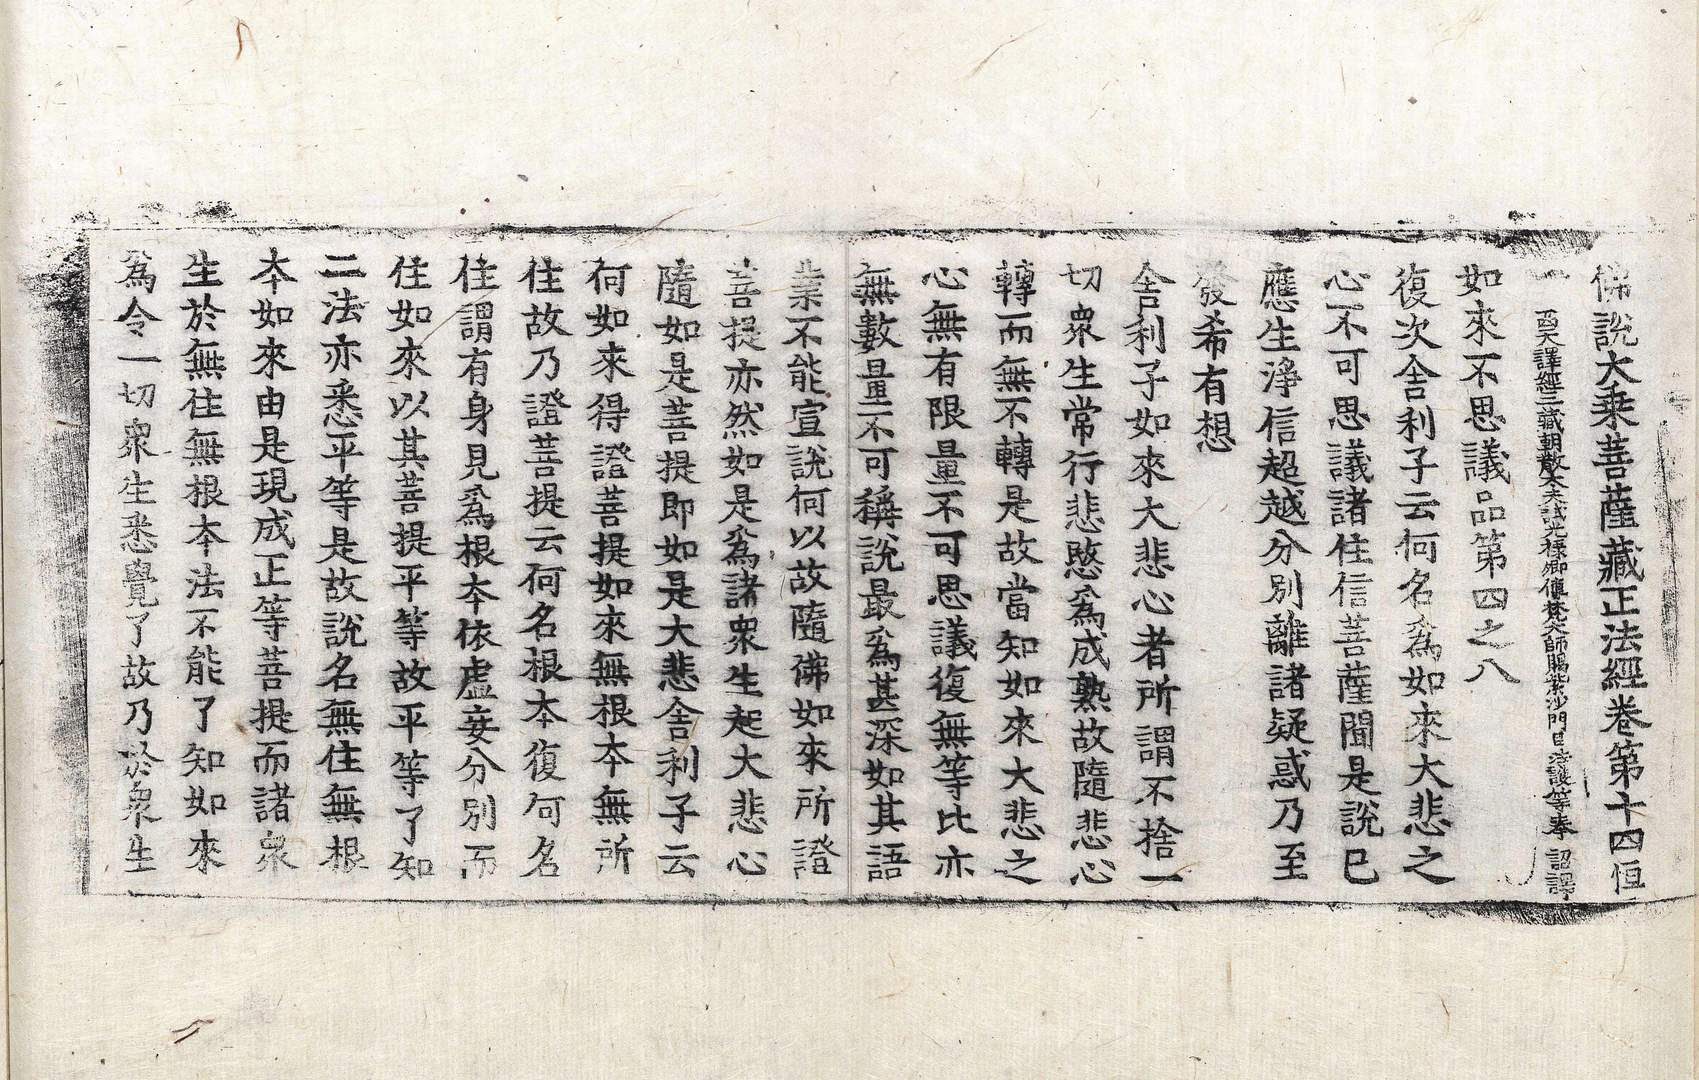 佛說大乘菩薩藏正法經卷第十四恒
一
西天譯經三藏朝散大夫試光祿卿傳梵大師賜紫沙門臣法護等奉 詔譯
如來不思議品第四之八
復次舍利子云何名爲如來大悲之
心不可思議諸住信菩薩聞是說已
應生淨信超越分別離諸疑惑乃至
發希有想
舍利子如來大悲心者所謂不捨一
切衆生常行悲愍爲成熟故隨悲心
轉而無不轉是故當知如來大悲之
心無有限量不可思議復無等比亦
無數量不可稱說最爲甚深如其語
業不能宣說何以故隨佛如來所證
菩提亦然如是爲諸衆生起大悲心
隨如是菩提即如是大悲舍利子云
何如來得證菩提如來無根本無所
住故乃證菩提云何名根本復何名
住謂有身見爲根本依虛妄分別而
住如來以其菩提平等故平等了知
二法亦悉平等是故說名無住無根
本如來由是現成正等菩提而諸衆
生於無住無根本法不能了知如來
爲令一切衆生悉覺了故乃於衆生